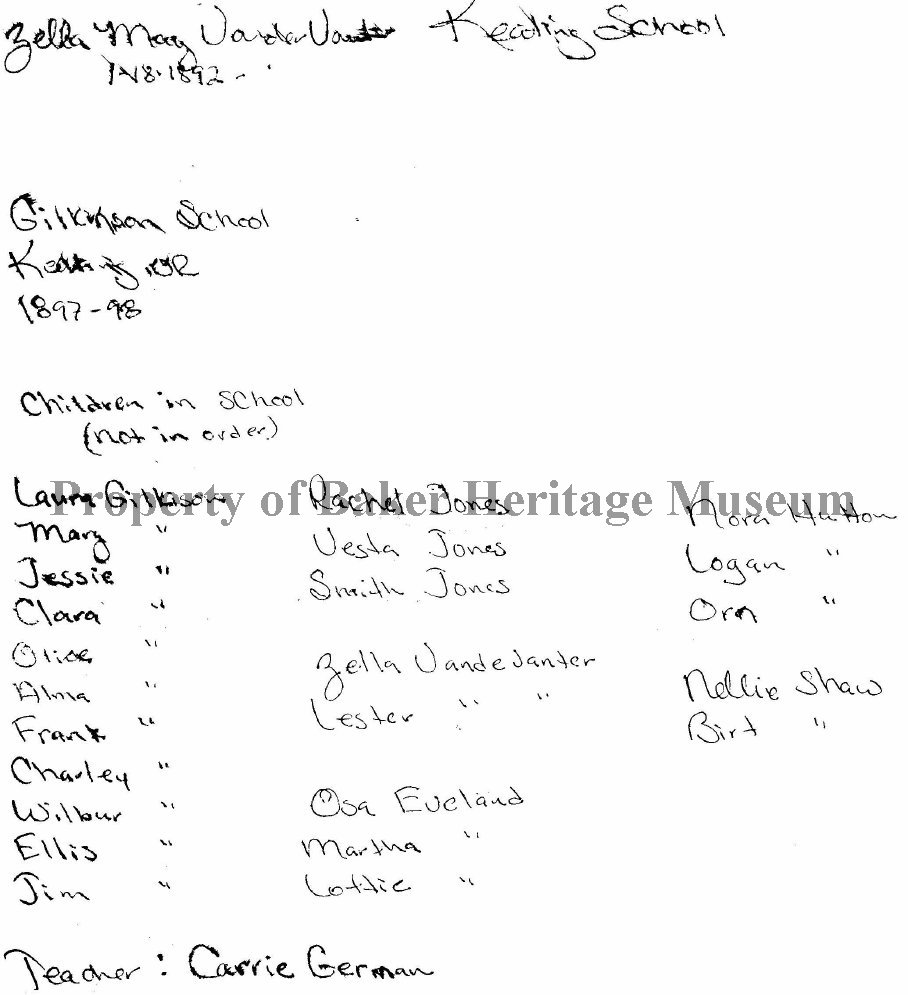 Zella May VanderVanter Keating School
1-18-1892 -
Gilkinson School
Keating, OR
1897-98
Children in School
(not in order)
Laura Gilkison
Mary "
Jessie "
Clara "
Olive "
Alma "
Frank "
Charley "
Wilbur "
Ellis "
Jim "
Rachel Jones
Vesta Jones
Smith Jones
Zella VandeVanter
Lester " "
Osa Eveland
Martha "
Lottie "
Nora Hutton
Logan "
Orn "
Nellie Shaw
Birt "
Teacher : Carrie German
Property of Baker Heritage Museum